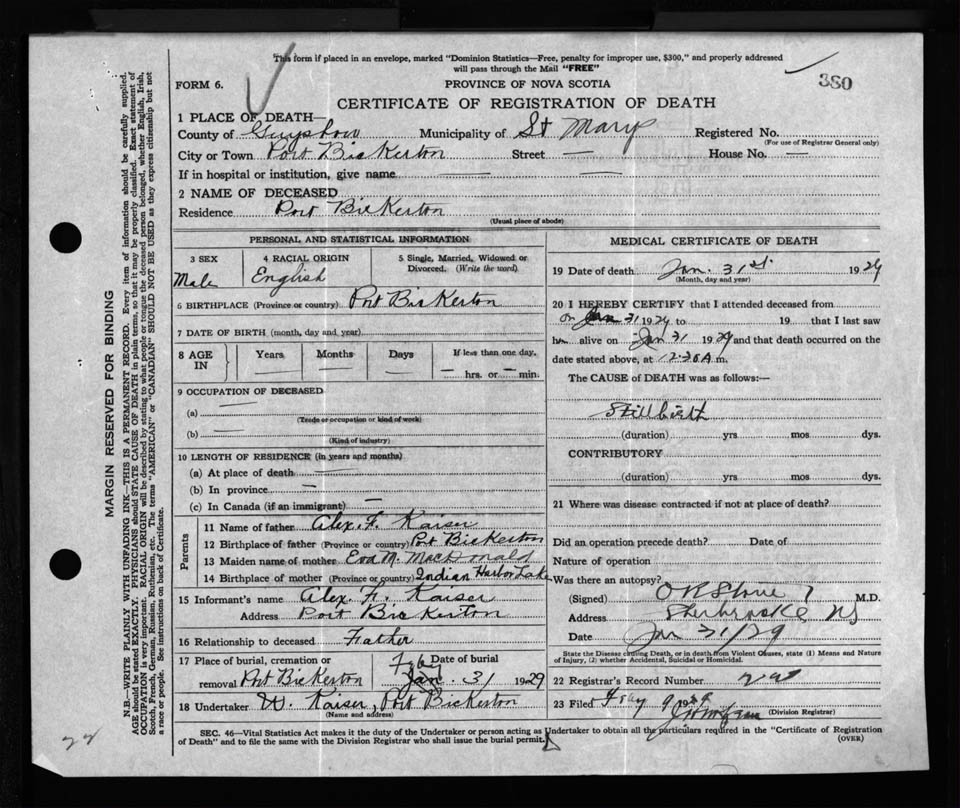 This form if placed in an envelope, marked "Dominion Statistics—Free, penalty for improper use, $300," and properly addressed
will pass through the Mail "FREE"
380
FORM 6.
PROVINCE OF NOVA SCOTIA
CERTIFICATE OF REGISTRATION OF DEATH
1 PLACE OF DEATH—
County of Guysboro Municipality of St Marys Registered No.
(For use of Registrar General only)
City or Town Port Bickerton Street — House No. —
If in hospital or institution, give name — —
2 NAME OF DECEASED
Residence Port Bickerton
(Usual place of abode)
PERSONAL AND STATISTICAL INFORMATION
3 SEX 4 RACIAL ORIGIN 5 Single, Married, Widowed or Divorced. (Write the word)
Male English
6 BIRTHPLACE (Province or country) Port Bickerton
7 DATE OF BIRTH (month, day and year)
8 AGE IN Years Months Days If less than one day.
— hrs. or — min.
9 OCCUPATION OF DECEASED
(a) —
(Trade or occupation or kind of work)
(b) —
(Kind of industry)
10 LENGTH OF RESIDENCE (in years and months)
(a) At place of death —
(b) In province —
(c) In Canada (if an immigrant) —
Parents
11 Name of father Alex. F. Kaiser
12 Birthplace of father (Province or country) Port Bickerton
13 Maiden name of mother Eva M. MacDonald
14 Birthplace of mother (Province or country) Indian Harbor Lake
15 Informant's name Alex. F. Kaiser
Address Port Bickerton
16 Relationship to deceased Father
17 Place of burial, cremation or Date of burial
removal Port Bickerton Jan. 31 1929
Feb
18 Undertaker W. Kaiser, Port Bickerton
(Name and address)
MEDICAL CERTIFICATE OF DEATH
19 Date of death Jan. 31st. 1929
(Month, day and year)
20 I HEREBY CERTIFY that I attended deceased from
on Jan 31 1929 to 19 that I last saw
h alive on Jan 31 1929 and that death occurred on the
date stated above, at 12.30 A m.
The CAUSE of DEATH was as follows:—
Stillbirth
(duration) yrs mos dys.
CONTRIBUTORY
(duration) yrs mos dys.
21 Where was disease contracted if not at place of death?
Did an operation precede death? Date of
Nature of operation
Was there an autopsy?
(Signed) M.D.
Address Sherbrooke NS
Date Jan 31/29
State the Disease causing Death, or in death from Violent Causes, state (1) Means and Nature
of Injury, (2) whether Accidental, Suicidal or Homicidal.
22 Registrar's Record Number
23 Filed 9 1929
(Division Registrar)
SEC. 46—Vital Statistics Act makes it the duty of the Undertaker or person acting as Undertaker to obtain all the particulars required in the "Certificate of Registration
of Death" and to file the same with the Division Registrar who shall issue the burial permit. (OVER)
MARGIN RESERVED FOR BINDING
N.B.—WRITE PLAINLY WITH UNFADING INK—THIS IS A PERMANENT RECORD. Every item of information should be carefully supplied.
AGE should be stated EXACTLY. PHYSICIANS should STATE CAUSE OF DEATH in plain terms, so that it may be properly classified. Exact statement of
OCCUPATION is very important. RACIAL ORIGIN will be described by stating to what people or tongue the deceased person belonged, whether English, Irish,
Scotch, French, German, Russian, Ruthenian, etc. The terms "AMERICAN" or "CANADIAN" SHOULD NOT BE USED as they express citizenship but not
a race or people. See instructions on back of Certificate.